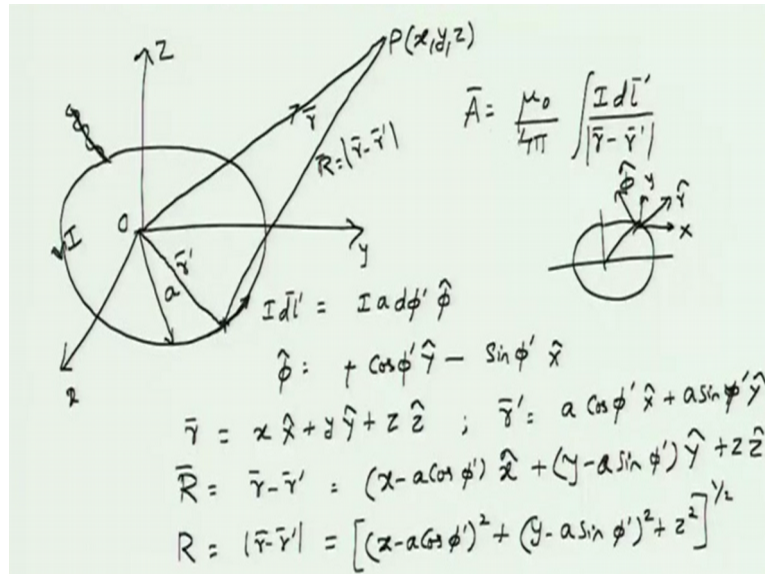 Z
P(x, y, z)
r̄
R̄ = |r̄ - r̄'|
Ā = μ₀/4π ∫ I dl̄' / |r̄ - r̄'|
φ̂ y r̂
x
O
y
I
r̄'
a
x
I dl̄' = I a dφ' φ̂
φ̂ : + Cosφ' ŷ - Sinφ' x̂
r̄ = x x̂ + y ŷ + z ẑ ; r̄' = a Cosφ' x̂ + a Sinφ' ŷ
R̄ = r̄ - r̄' = (x - a Cosφ') x̂ + (y - a Sinφ') ŷ + z ẑ
R = |r̄ - r̄'| = [(x - a Cosφ')² + (y - a Sinφ')² + z²]^1/2